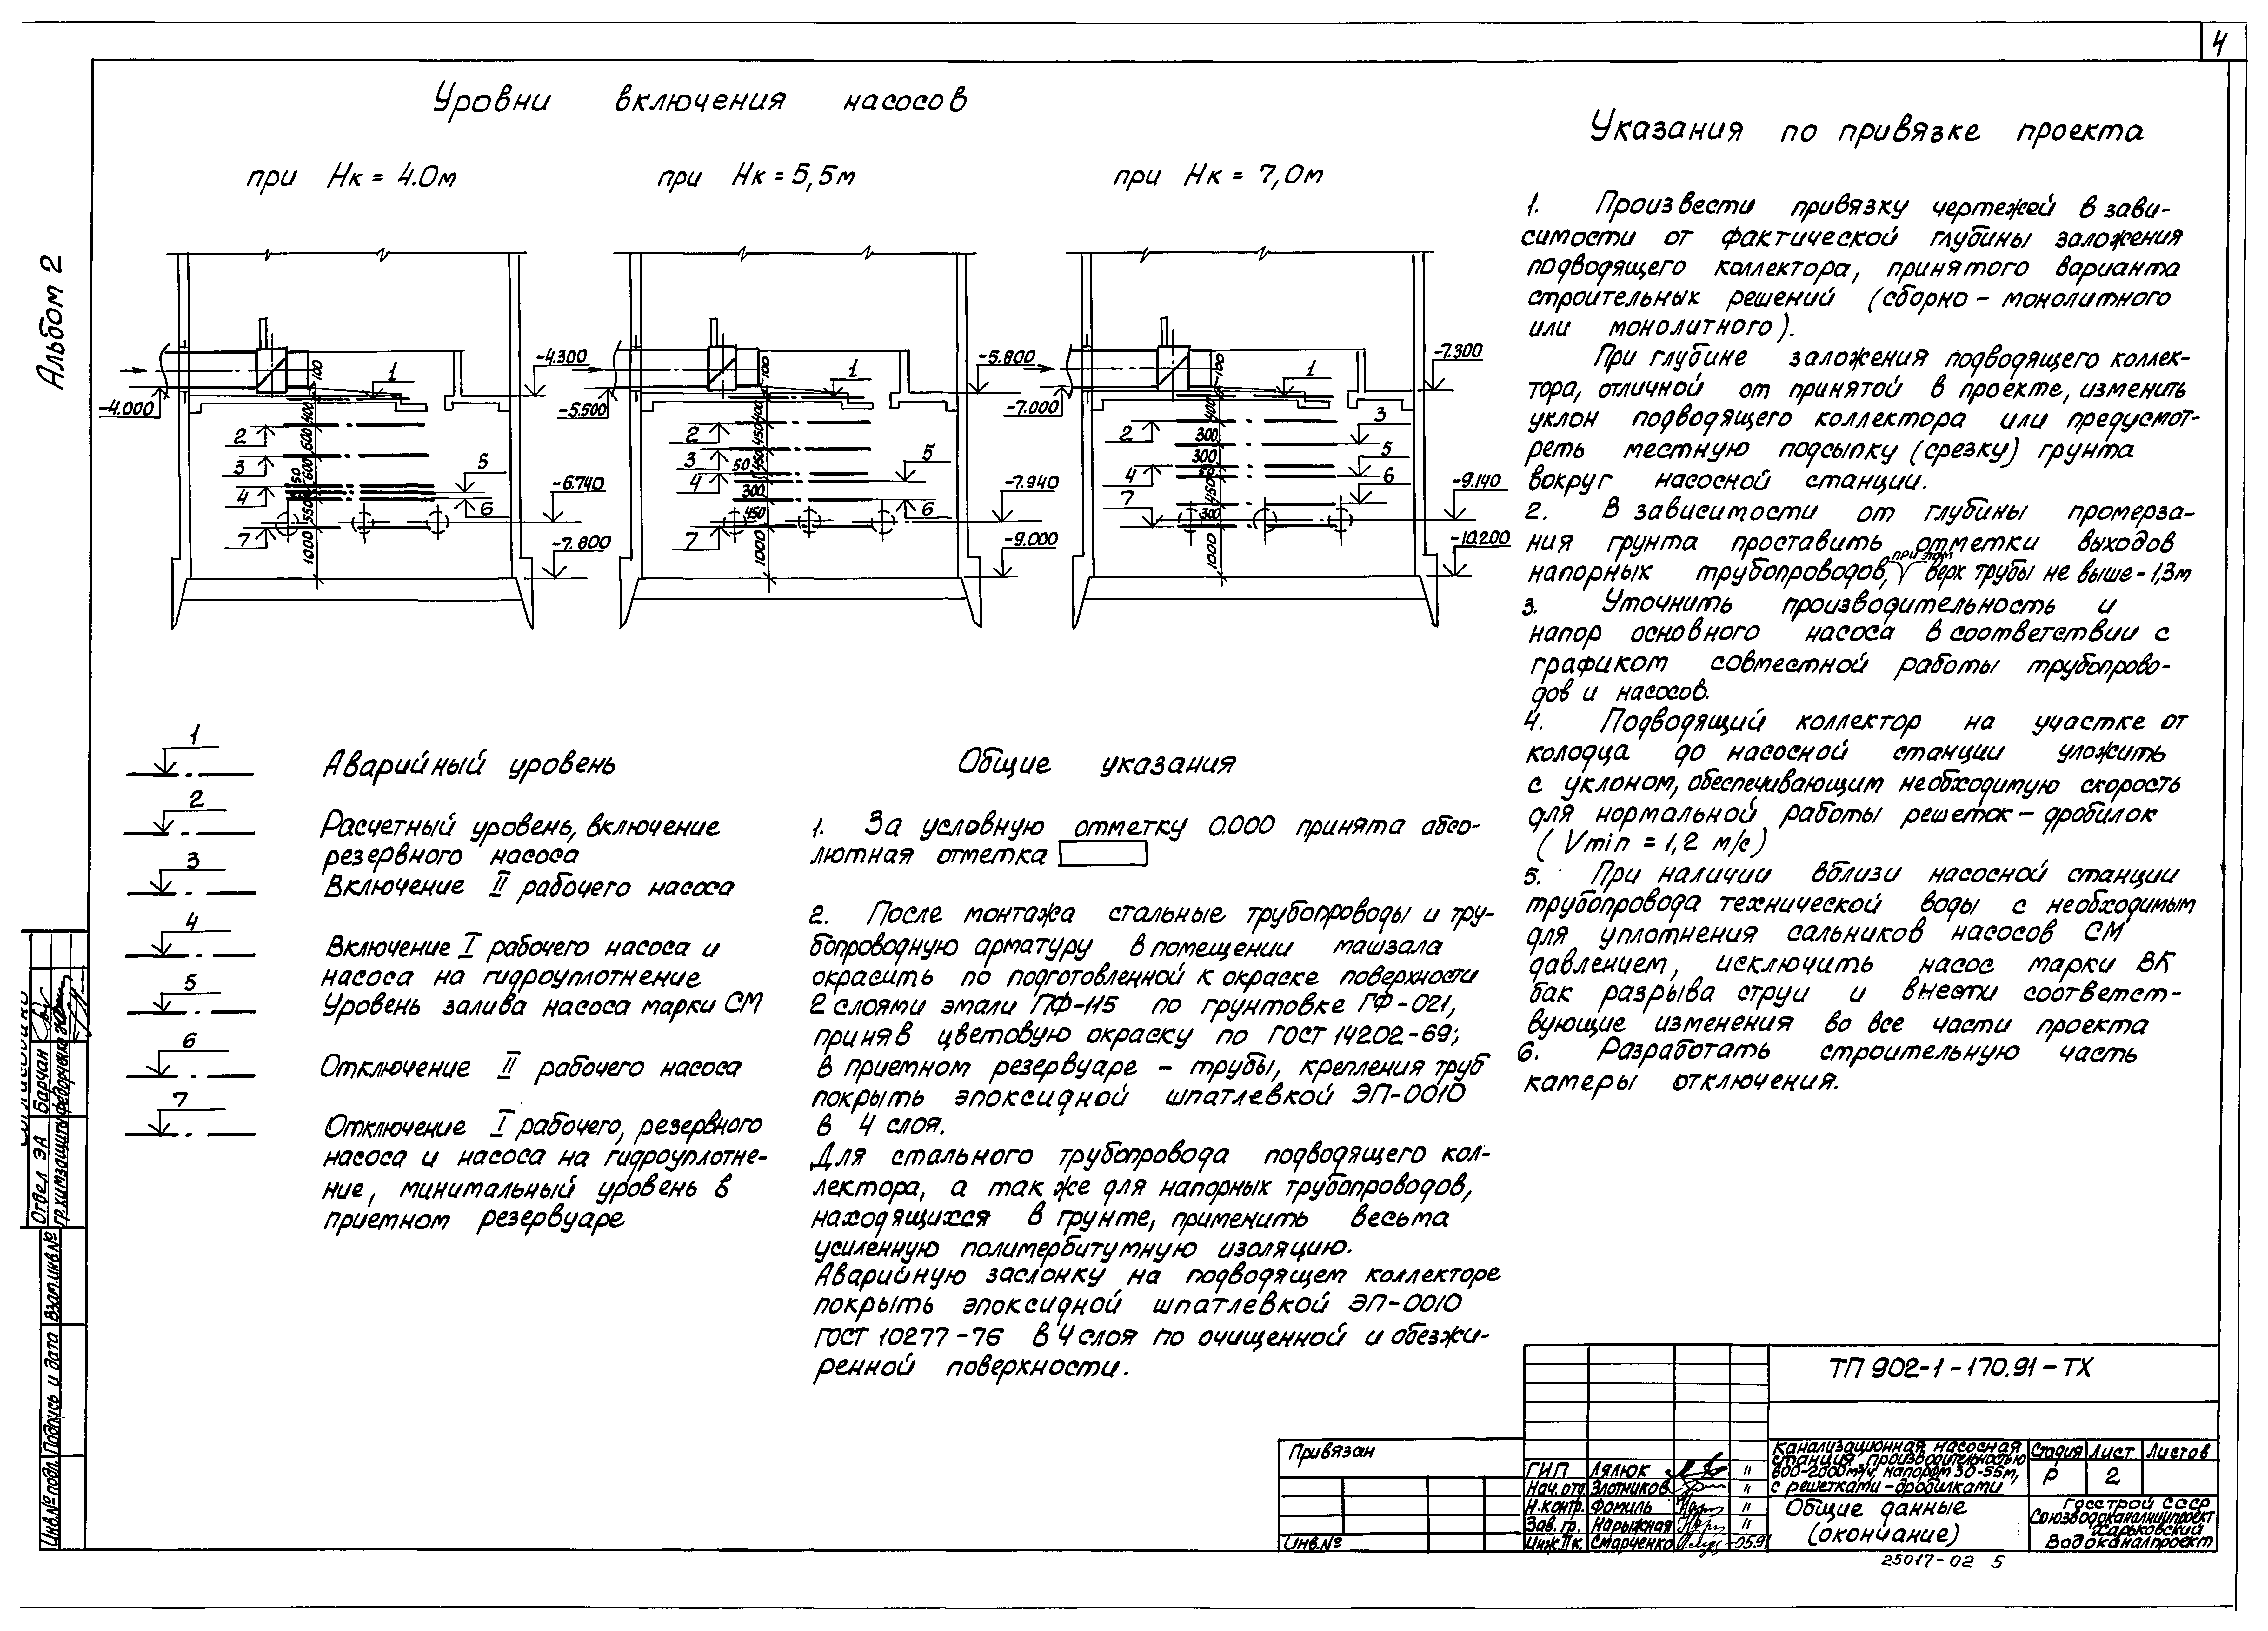 4
Альбом 2
Уровни включения насосов
при Нк = 4.0м
при Нк = 5,5м
при Нк = 7,0м
-4.000
-4.300
-6.740
-7.800
1
2
3
4
5
6
7
100
400
600
600
50
550
1000
-5.500
-5.800
-7.940
-9.000
1
2
3
4
5
6
7
100
400
450
450
50
300
450
1000
-7.000
-7.300
-9.140
-10.200
1
2
3
4
5
6
7
100
400
300
300
50
450
300
1000
1
Аварийный уровень
2
Расчетный уровень, включение
резервного насоса
3
Включение II рабочего насоса
4
Включение I рабочего насоса и
насоса на гидроуплотнение
5
Уровень залива насоса марки СМ
6
Отключение II рабочего насоса
7
Отключение I рабочего, резервного
насоса и насоса на гидроуплотне-
ние, минимальный уровень в
приемном резервуаре
Общие указания
1. За условную отметку 0.000 принята абсо-
лютная отметка
2. После монтажа стальные трубопроводы и тру-
бопроводную арматуру в помещении машзала
окрасить по подготовленной к окраске поверхности
2 слоями эмали ПФ-115 по грунтовке ГФ-021,
приняв цветовую окраску по ГОСТ 14202-69;
в приемном резервуаре - трубы, крепления труб
покрыть эпоксидной шпатлевкой ЭП-0010
в 4 слоя.
Для стального трубопровода подводящего кол-
лектора, а так же для напорных трубопроводов,
находящихся в грунте, применить весьма
усиленную полимербитумную изоляцию.
Аварийную заслонку на подводящем коллекторе
покрыть эпоксидной шпатлевкой ЭП-0010
ГОСТ 10277-76 в 4 слоя по очищенной и обезжи-
ренной поверхности.
Указания по привязке проекта
1. Произвести привязку чертежей в зави-
симости от фактической глубины заложения
подводящего коллектора, принятого варианта
строительных решений (сборно-монолитного
или монолитного).
При глубине заложения подводящего коллек-
тора, отличной от принятой в проекте, изменить
уклон подводящего коллектора или предусмот-
реть местную подсыпку (срезку) грунта
вокруг насосной станции.
2. В зависимости от глубины промерза-
ния грунта проставить отметки выходов
напорных трубопроводов, при этом верх трубы не выше -1,3м
3. Уточнить производительность и
напор основного насоса в соответствии с
графиком совместной работы трубопрово-
дов и насосов.
4. Подводящий коллектор на участке от
колодца до насосной станции уложить
с уклоном, обеспечивающим необходимую скорость
для нормальной работы решеток-дробилок
(Vmin = 1,2 м/с)
5. При наличии вблизи насосной станции
трубопровода технической воды с необходимым
для уплотнения сальников насосов СМ
давлением, исключить насос марки ВК
бак разрыва струи и внести соответст-
вующие изменения во все части проекта
6. Разработать строительную часть
камеры отключения.
Согласовано
Отдел ЭА Барчан
гр.химзащиты Федорченко
Взам.инв.№
Подпись и дата
Инв.№ подл.
Привязан
Инв.№
ТП 902-1-170.91-ТХ
ГИП Лялюк "
Нач.отд. Злотников "
Н.контр. Фомиль "
Зав. гр. Нарыжная "
Инж.II к. Смарченко 05.91
Канализационная насосная
станция производительностью
800-2000м³/ч, напором 30-55м,
с решетками-дробилками
Стадия Лист Листов
Р 2
Общие данные
(окончание)
Госстрой СССР
Союзводоканалниипроект
Харьковский
Водоканалпроект
25017-02 5